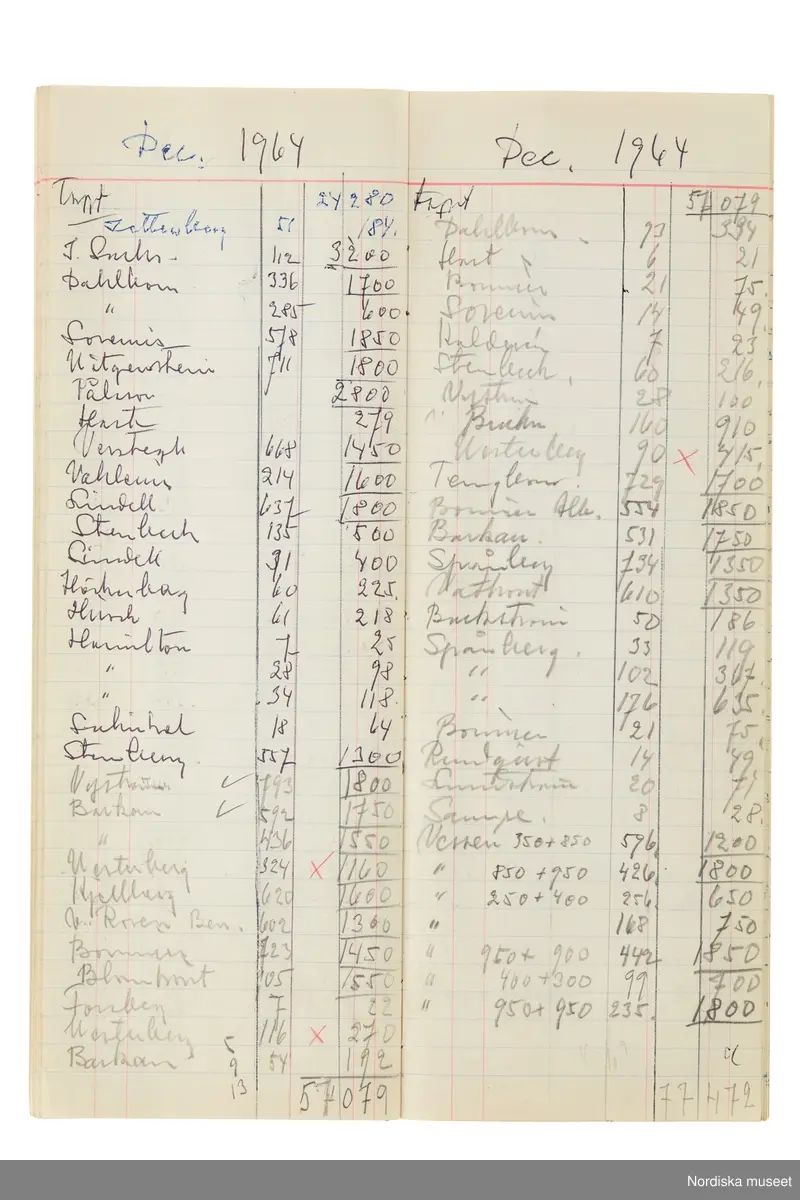 Dec. 1964
Trspt 24 280
Zetterberg 51 184.
J. Sachs - 112 3200
Dahlkom 336 1700
" 285 600
578 1850
711 1800
Påhson 2800
Hart 279
668 1450
214 1600
Lindell 637 1800
Stenbeck 135 500
Lindell 91 400
60 225.
Husch 61 218
Hamilton 7 25
" 28 98
" 34 118.
18 64
Stenberg. 557 1300
793 1800
Barkan 592 1750
" 436 1550
Westerberg 324 x 1160
Kjellberg 620 1600
v. Rosen Ben. 602 1300
Bonnier 723 1450
105 1550
Forsberg 7 22
Westerberg 116 x 270
Barkan 54 192
5
9
13
57 079
Dec. 1964
57 079
93 334
Hart 6 21
Bonnier 21 75.
14 49
7 23
Stenbeck. 60 216.
28 100
" 160 910
Westerberg 90 x 415.
729 1700
Bonnier Alb. 554 1850
Barkan. 531 1750
Spånberg 734 1350
610 1350
Backström 50 186
Spånberg. 33 119
" 102 367.
" 176 635.
Bonnier 21 75.
Rundquist 14 49
Lundström 20 71
Sampe. 8 28.
350+850 596 1200
" 850+950 426 1800
" 250+400 256 650
" 168 750
" 950+ 900 442 1850
" 400+300 99 700
" 950+ 950 235. 1800
77 472
Nordiska museet